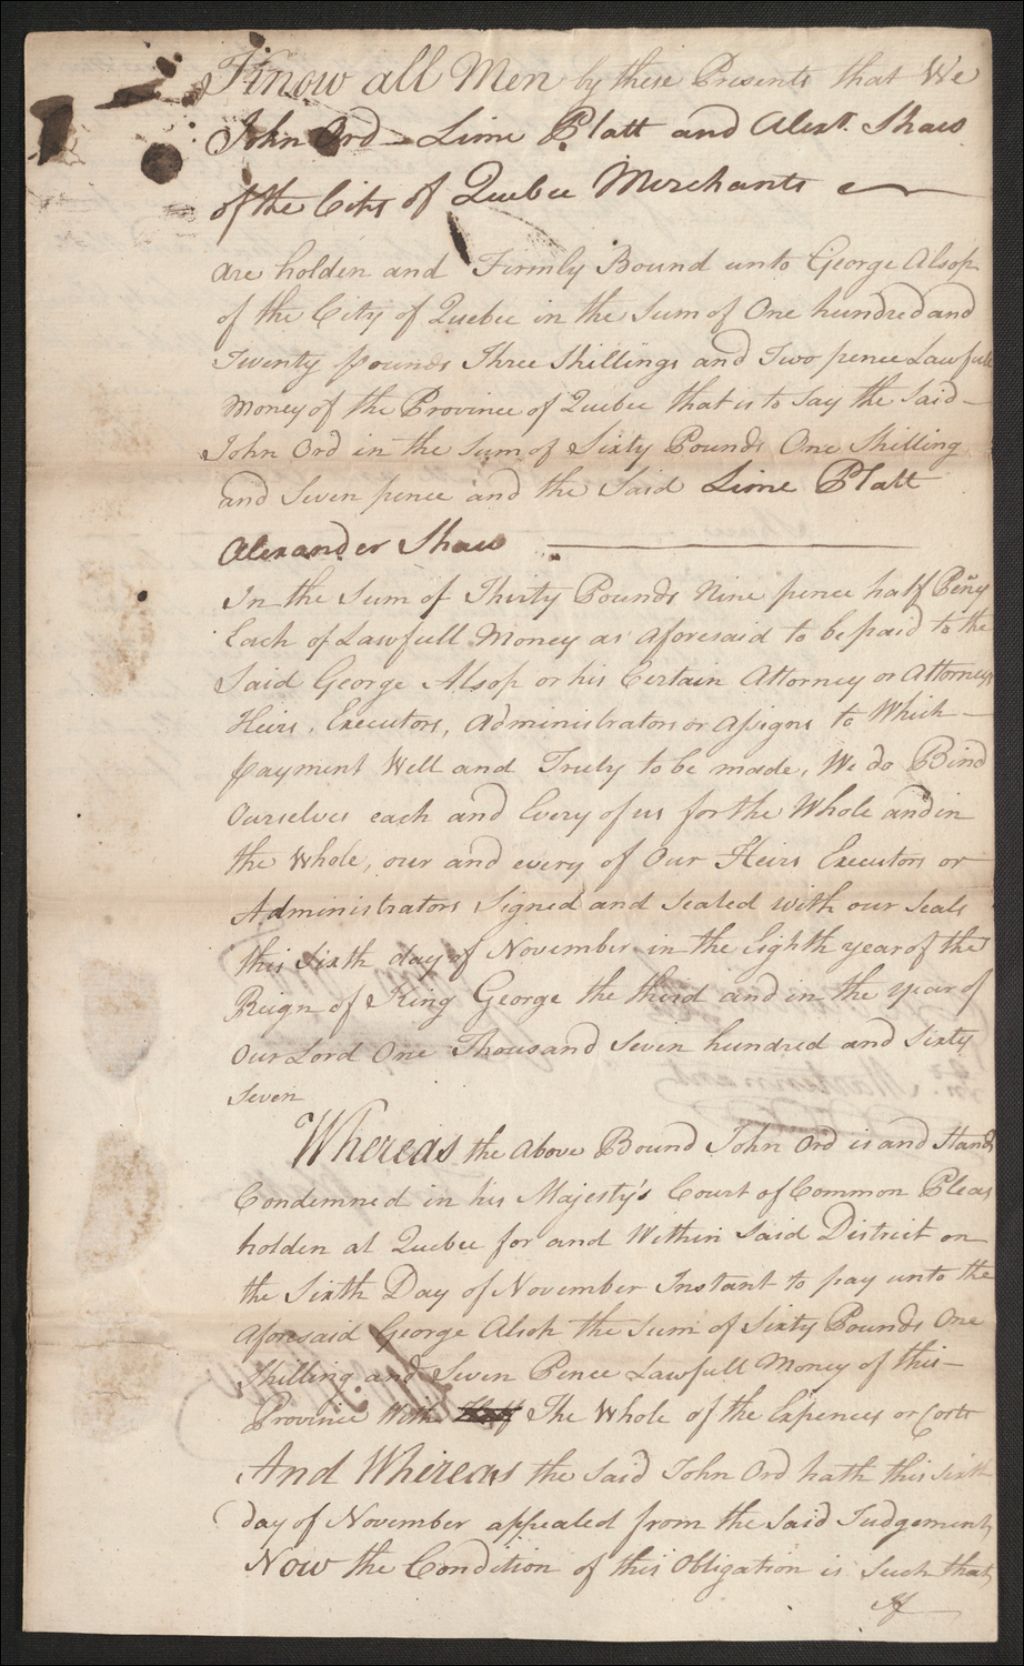 Know all Men by these Presents that We
John Ord – Lime Platt and Alexr. Shaw
of the City of Quebec Merchants
are holden and Firmly Bound unto George Alsop
of the City of Quebec in the Sum of One hundred and
Twenty pounds Three Shillings and Two pence Lawfull
Money of the Province of Quebec that is to Say the Said –
John Ord in the Sum of Sixty Pounds One Shilling
and Seven pence and the Said Lime Platt
Alexander Shaw
In the Sum of Thirty Pounds Nine pence half Peny
Each of Lawfull Money as aforesaid to be paid to the
Said George Alsop or his Certain Attorney or Attorneys
Heirs, Executors, Administrators or Assigns to Which –
payment Well and Truly to be made, We do Bind
Ourselves each and Every of us for the Whole and in
the Whole, our and every of Our Heirs Executors or
Administrators Signed and Sealed with our Seals
this Sixth day of November in the Eighth year of the
Reign of King George the third and in the year of
Our Lord One Thousand Seven hundred and Sixty
Seven
Whereas the Above Bound John Ord is and Stands
Condemned in his Majesty's Court of Common Pleas
holden at Quebec for and Within Said District on
the Sixth Day of November Instant to pay unto the
aforesaid George Alsop the Sum of Sixty Pounds One
Shilling and Seven Pence Lawfull Money of this –
Province With The Whole of the Expences or Costs
And Whereas the Said John Ord hath this Sixth
day of November appealed from the Said Judgement,
Now the Condition of this Obligation is Such that,
If